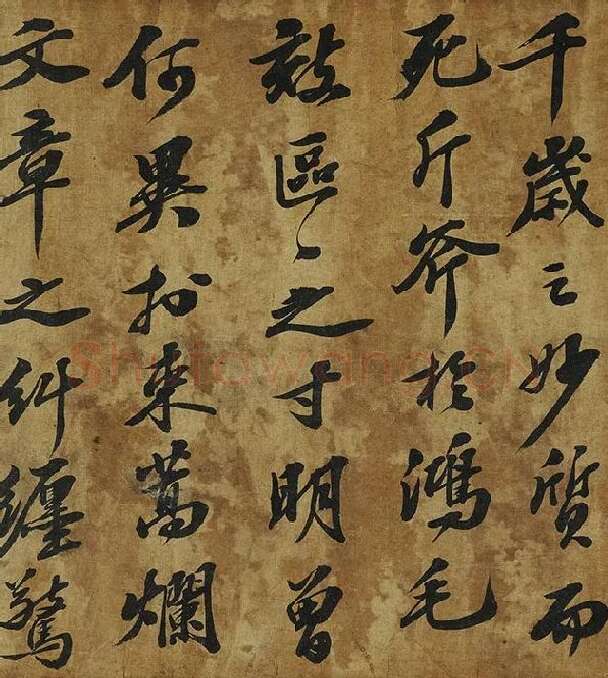 千歲之妙質而
死斤斧於鴻毛
效區〻之寸明曾
何異於束蒿爛
文章之糾纏驚